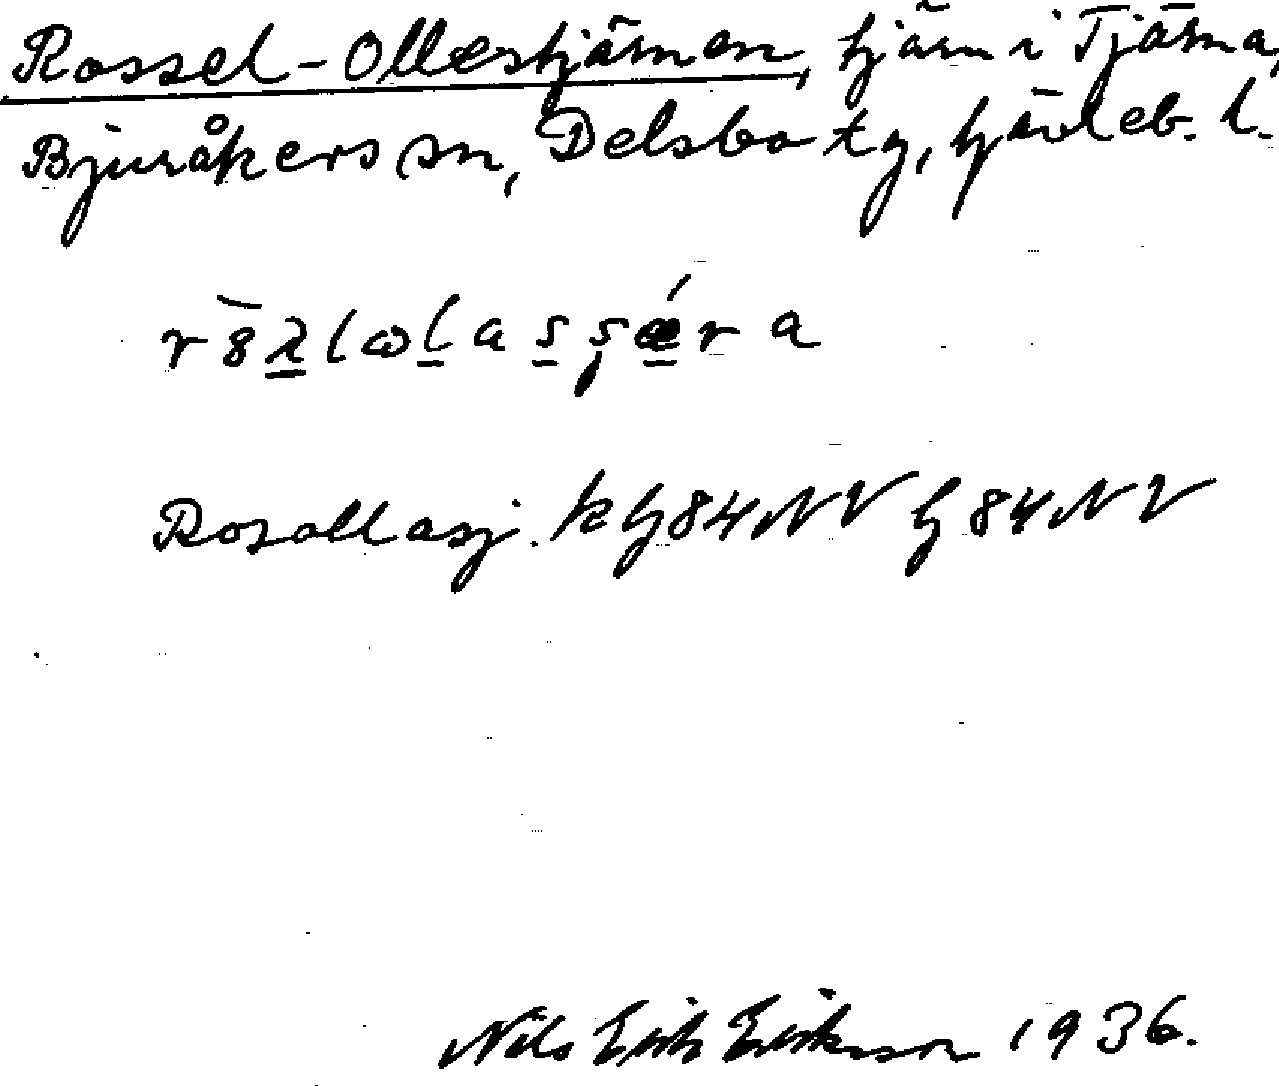 Rossel-Ollestjärnen, tjärn i Tjärna,
Bjuråkers sn, Delsbo tg, Gävleb. l.
Rosollasj. kg84NV g84NV
Nils Erik Eriksson 1936.